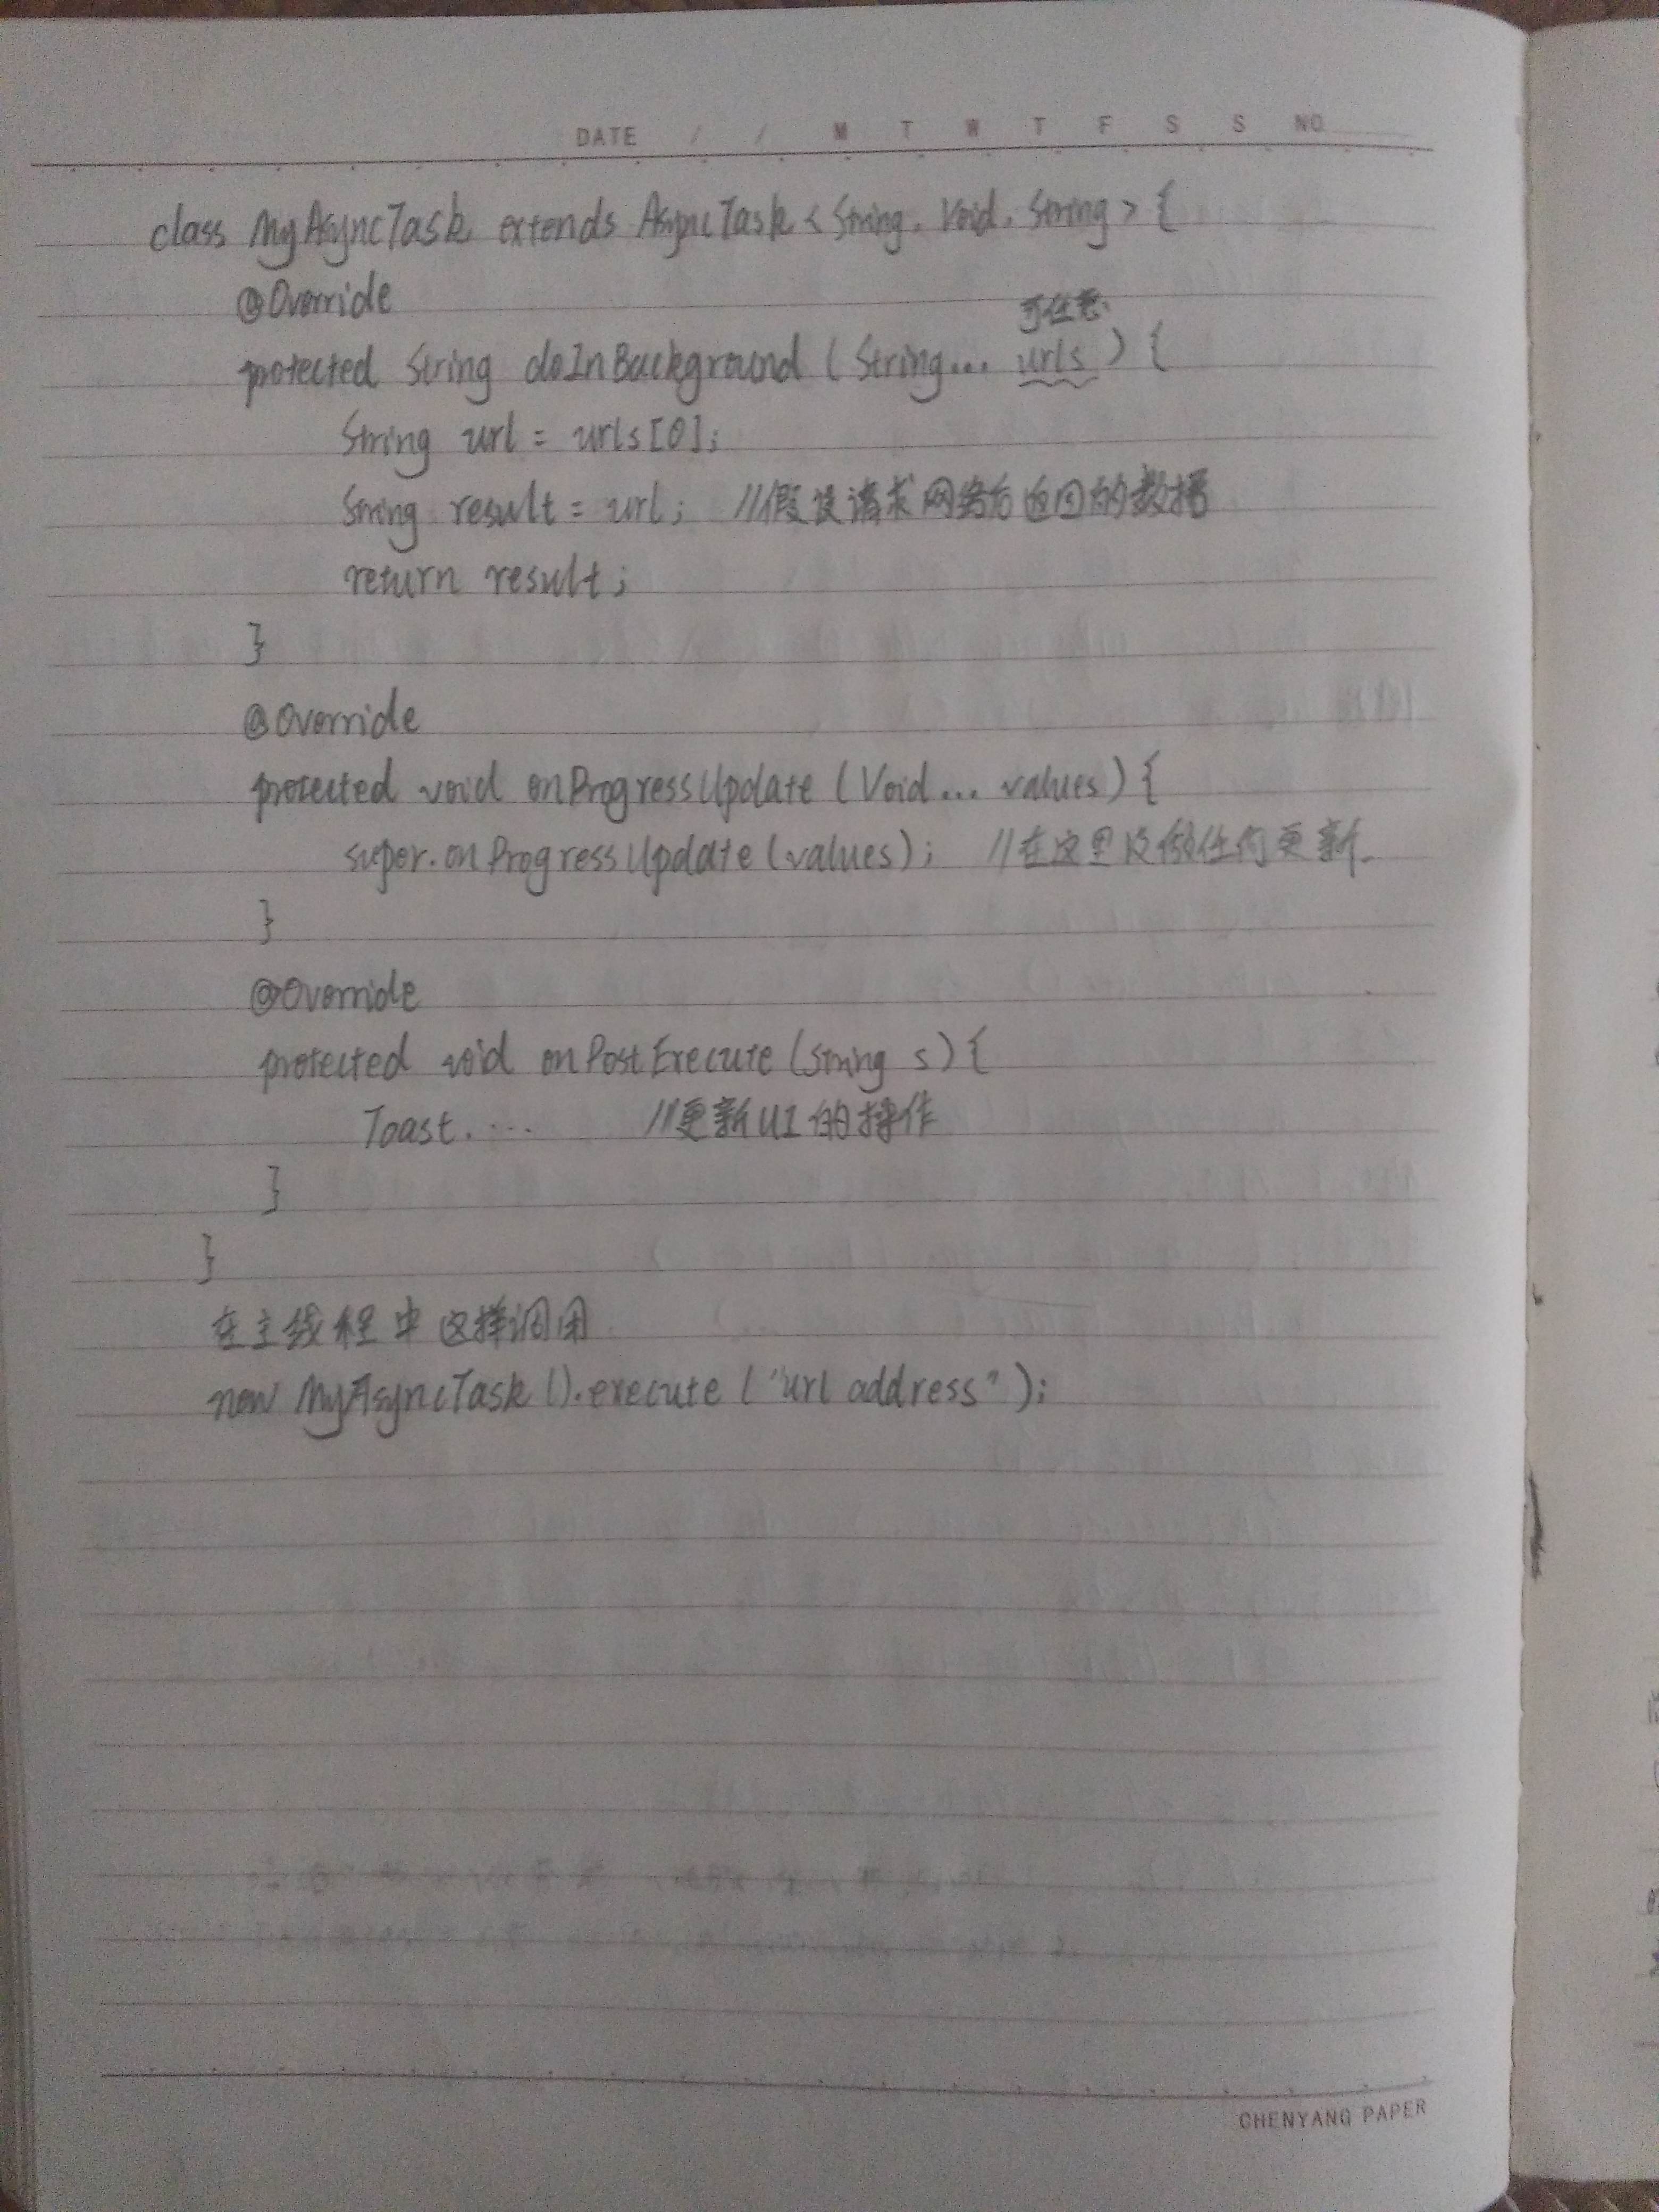 DATE / / M T W T F S S NO
class MyAsyncTask extends AsyncTask < String, Void, String > {
@Override
可任意
protected String doInBackground ( String... urls ) {
String url = urls[0];
String result = url; //假设请求网络后返回的数据
return result;
}
@Override
protected void onProgressUpdate (Void... values) {
super.onProgressUpdate (values); //在这里没做任何更新.
}
@Override
protected void onPostExecute (String s) {
Toast. ... //更新UI的操作
}
}
在主线程中这样调用
new MyAsyncTask ().execute ( "url address" );
CHENYANG PAPER